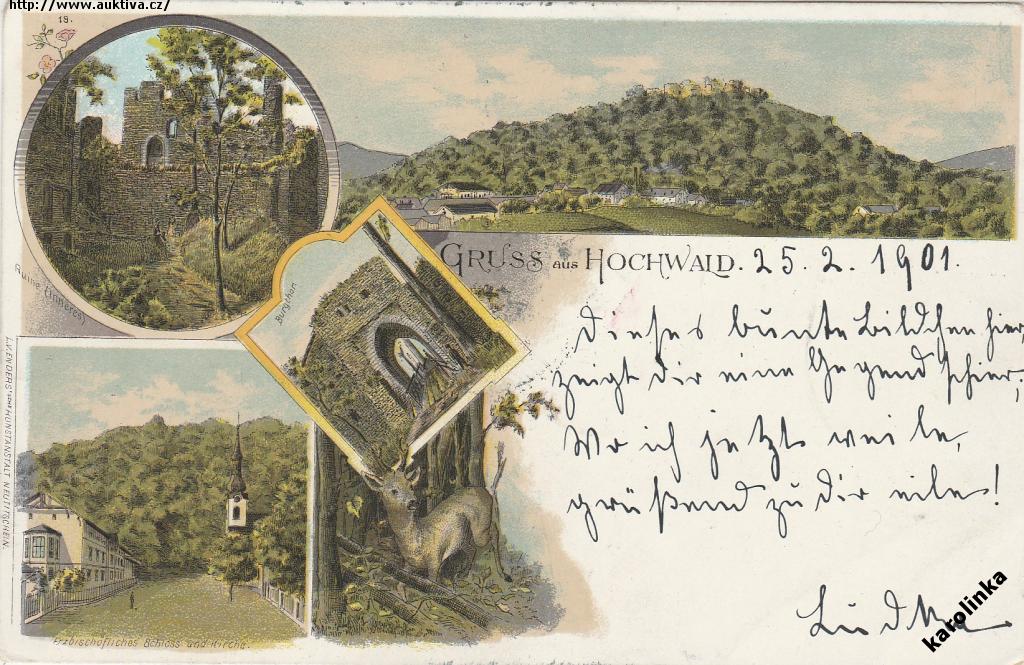 http://www.auktiva.cz/
19.
Ruine (Inneres)
Burgthor
GRUSS aus HOCHWALD. 25. 2. 1901.
Dieses bunte Bildchen hier,
zeigt dir eine Gegend schier;
Wo ich jetzt weile,
grüßend zu dir eile!
Erzbischöfliches Schloss und Kirche.
L.V. ENDERS'sche KUNSTANSTALT NEUTITSCHEIN.
karolinka